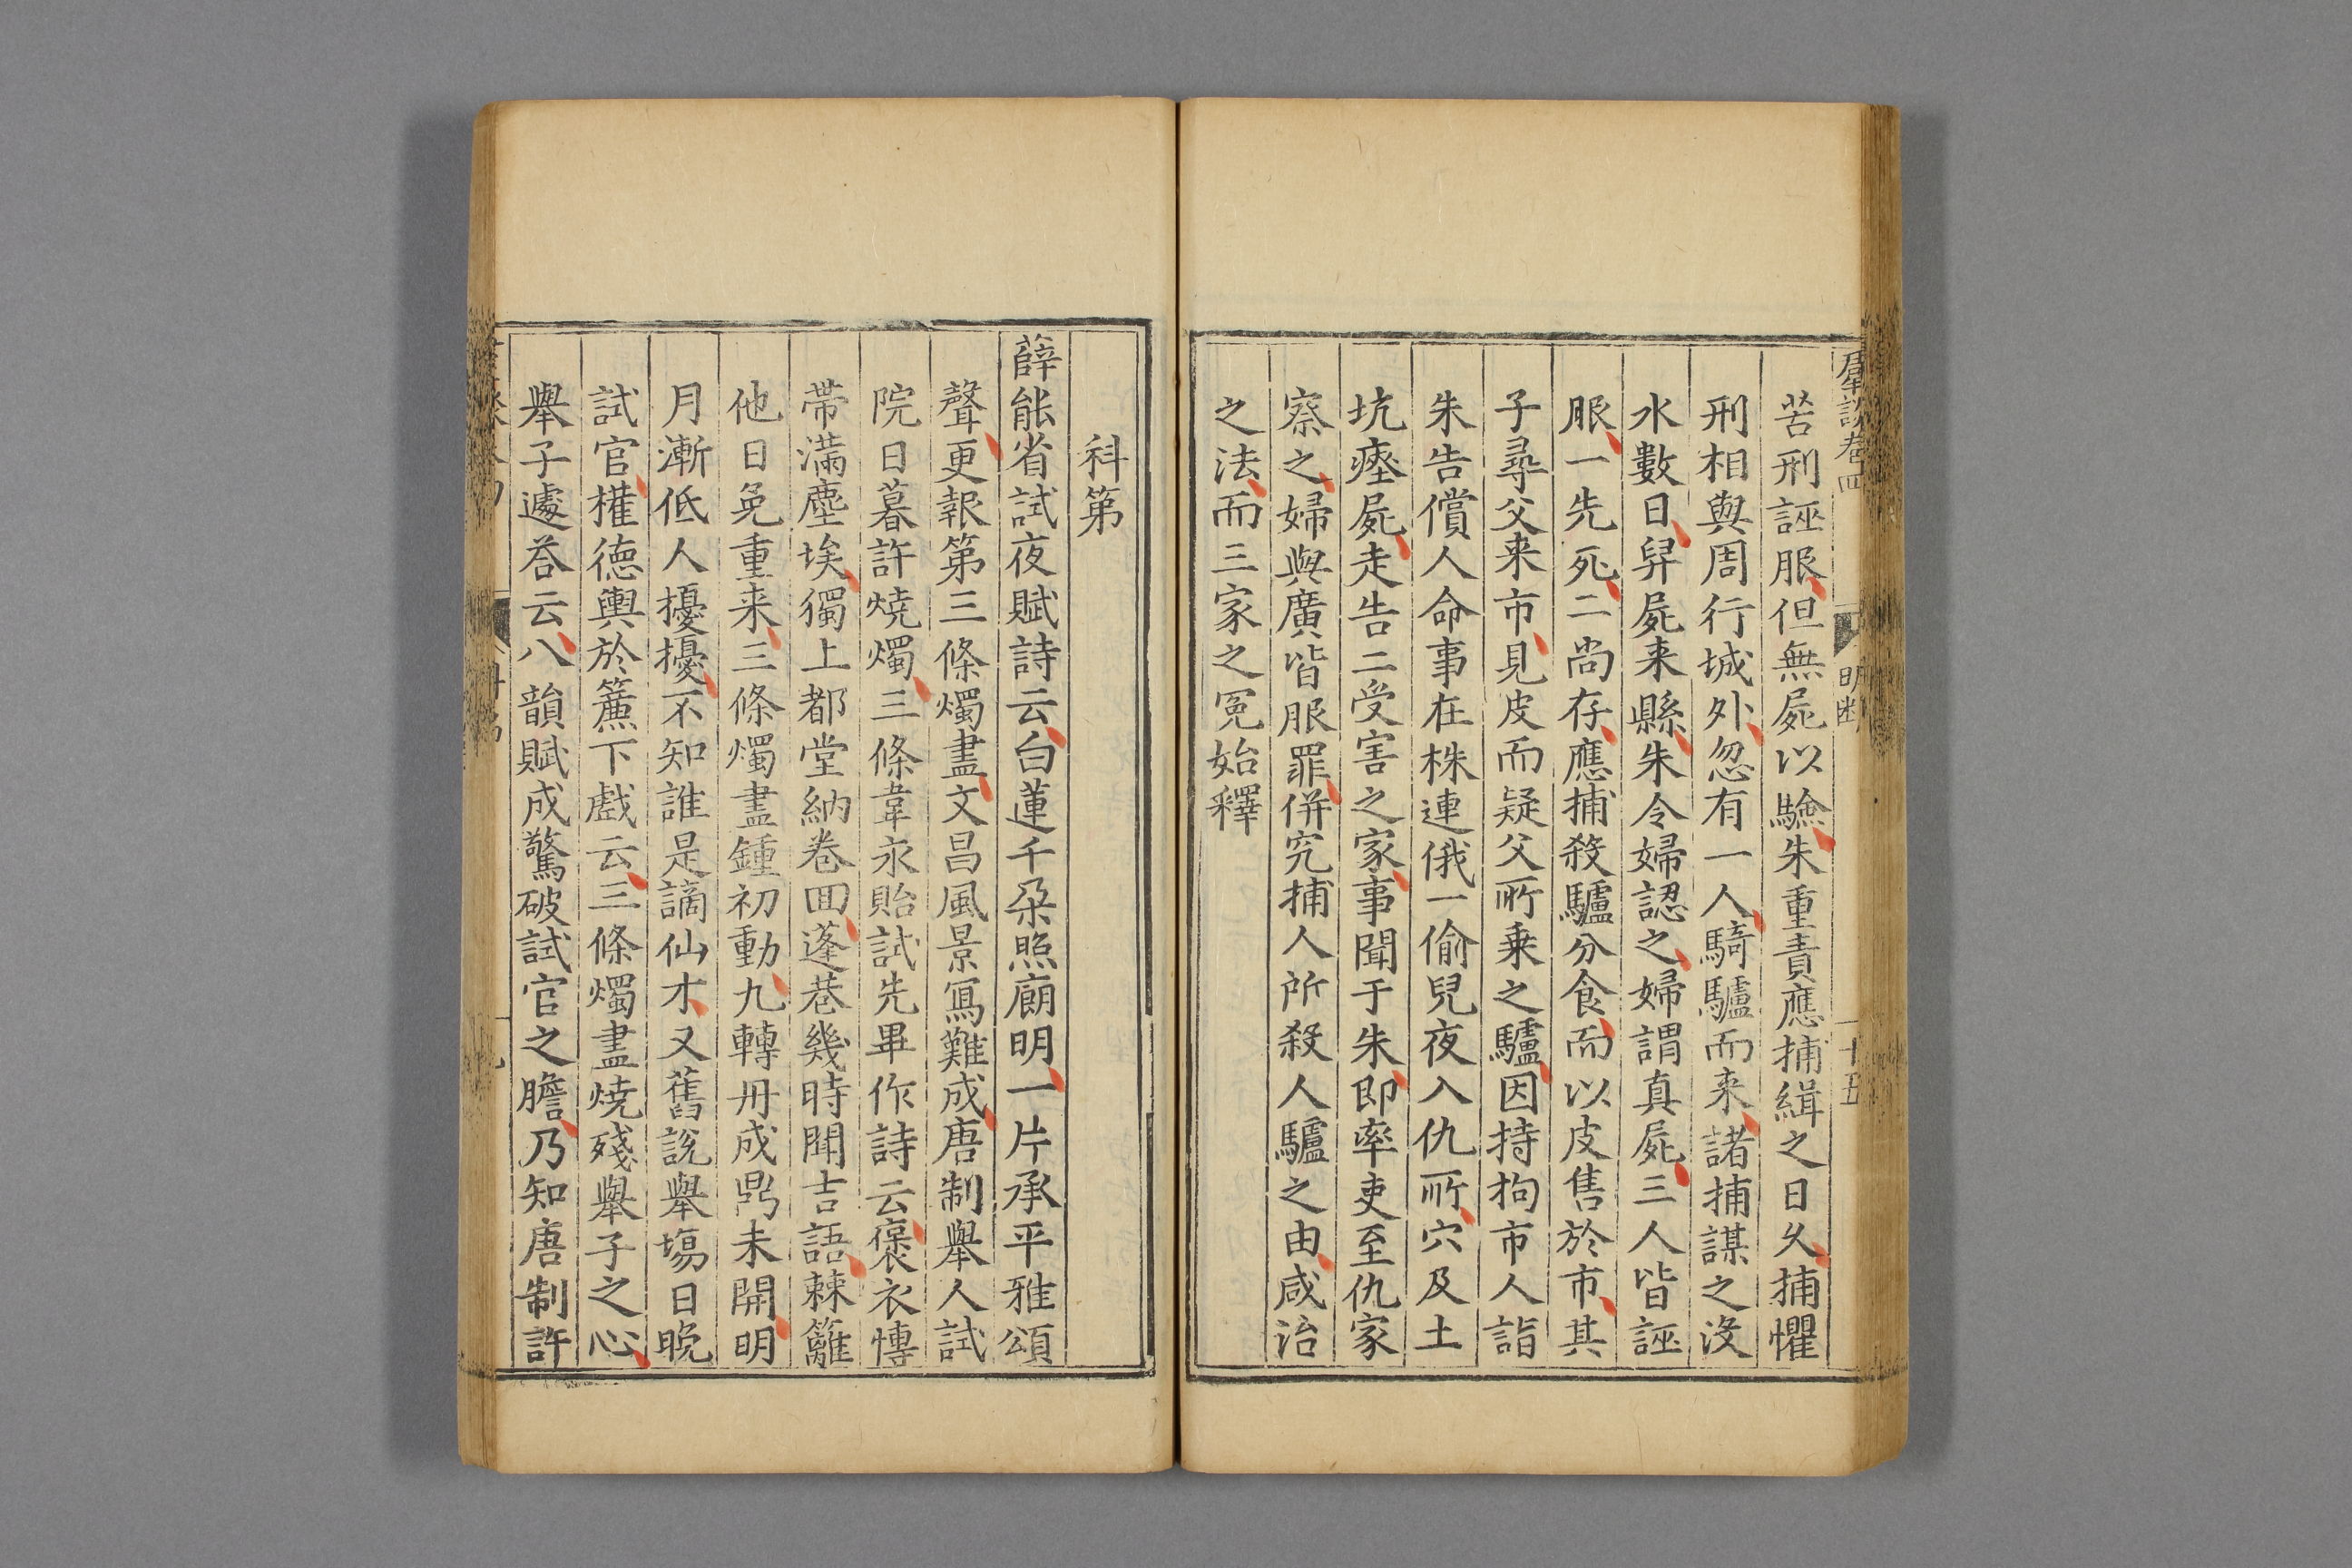 羣談卷四
明斷
十五
苦刑誣服但無屍以驗朱重責應捕緝之日久捕懼
刑相與周行城外忽有一人騎驢而来諸捕謀之沒
水數日舁屍来縣朱令婦認之婦謂真屍三人皆誣
服一先死二尚存應捕殺驢分食而以皮售於市其
子尋父来市見皮而疑父所乗之驢因持拘市人詣
朱告償人命事在株連俄一偷兒夜入仇所穴及土
坑瘞屍走告二受害之家事聞于朱即率吏至仇家
察之婦與廣皆服罪併究捕人所殺人驢之由咸治
之法而三家之冤始釋
科第
薛能省試夜賦詩云白蓮千朶照廊明一片承平雅頌
聲更報第三條燭盡文昌風景寫難成唐制舉人試
院日暮許燒燭三條韋永貽試先畢作詩云褒衣慱
帶滿塵埃獨上都堂納卷回蓬巷幾時聞吉語棘籬
他日免重来三條燭盡鍾初動九轉丹成鼎未開明
月漸低人擾擾不知誰是謫仙才又舊說舉塲日晚
試官權德輿於簾下戲云三條燭盡燒殘舉子之心
舉子遽荅云八韻賦成驚破試官之膽乃知唐制許